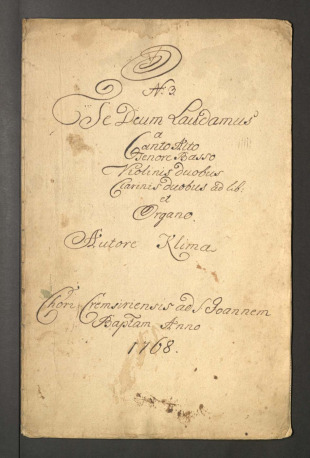 N: 3.
Te Deum Laudamus
a
Canto Alto
Tenore Basso
Violinis duobus
Clarinis duobus ad lib:
et
Organo.
Autore Klima
Chori Cremsiriensis ad S. Joannem
Baptam Anno
1768.